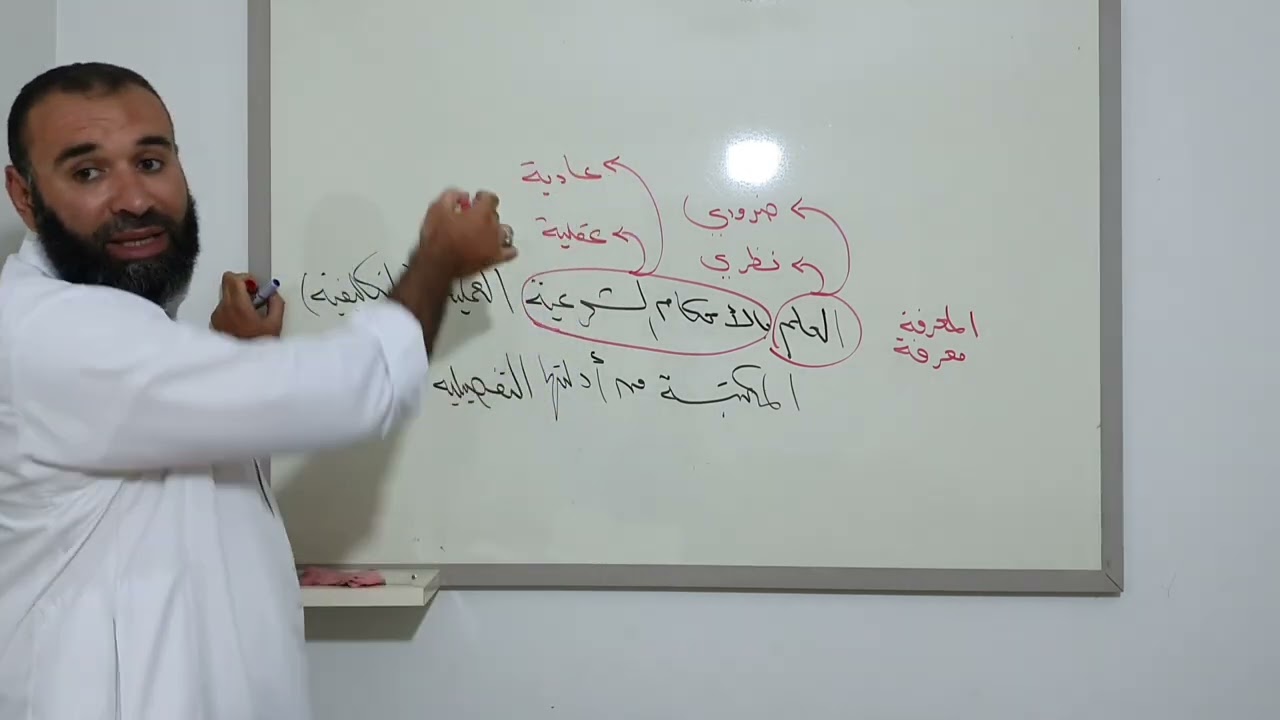 عادية
ضروري
عقلية
نظري
العلم بالأحكام الشرعية العملية (التكليفية)
المعرفة
معرفة
المكتسبة من أدلتها التفصيلية